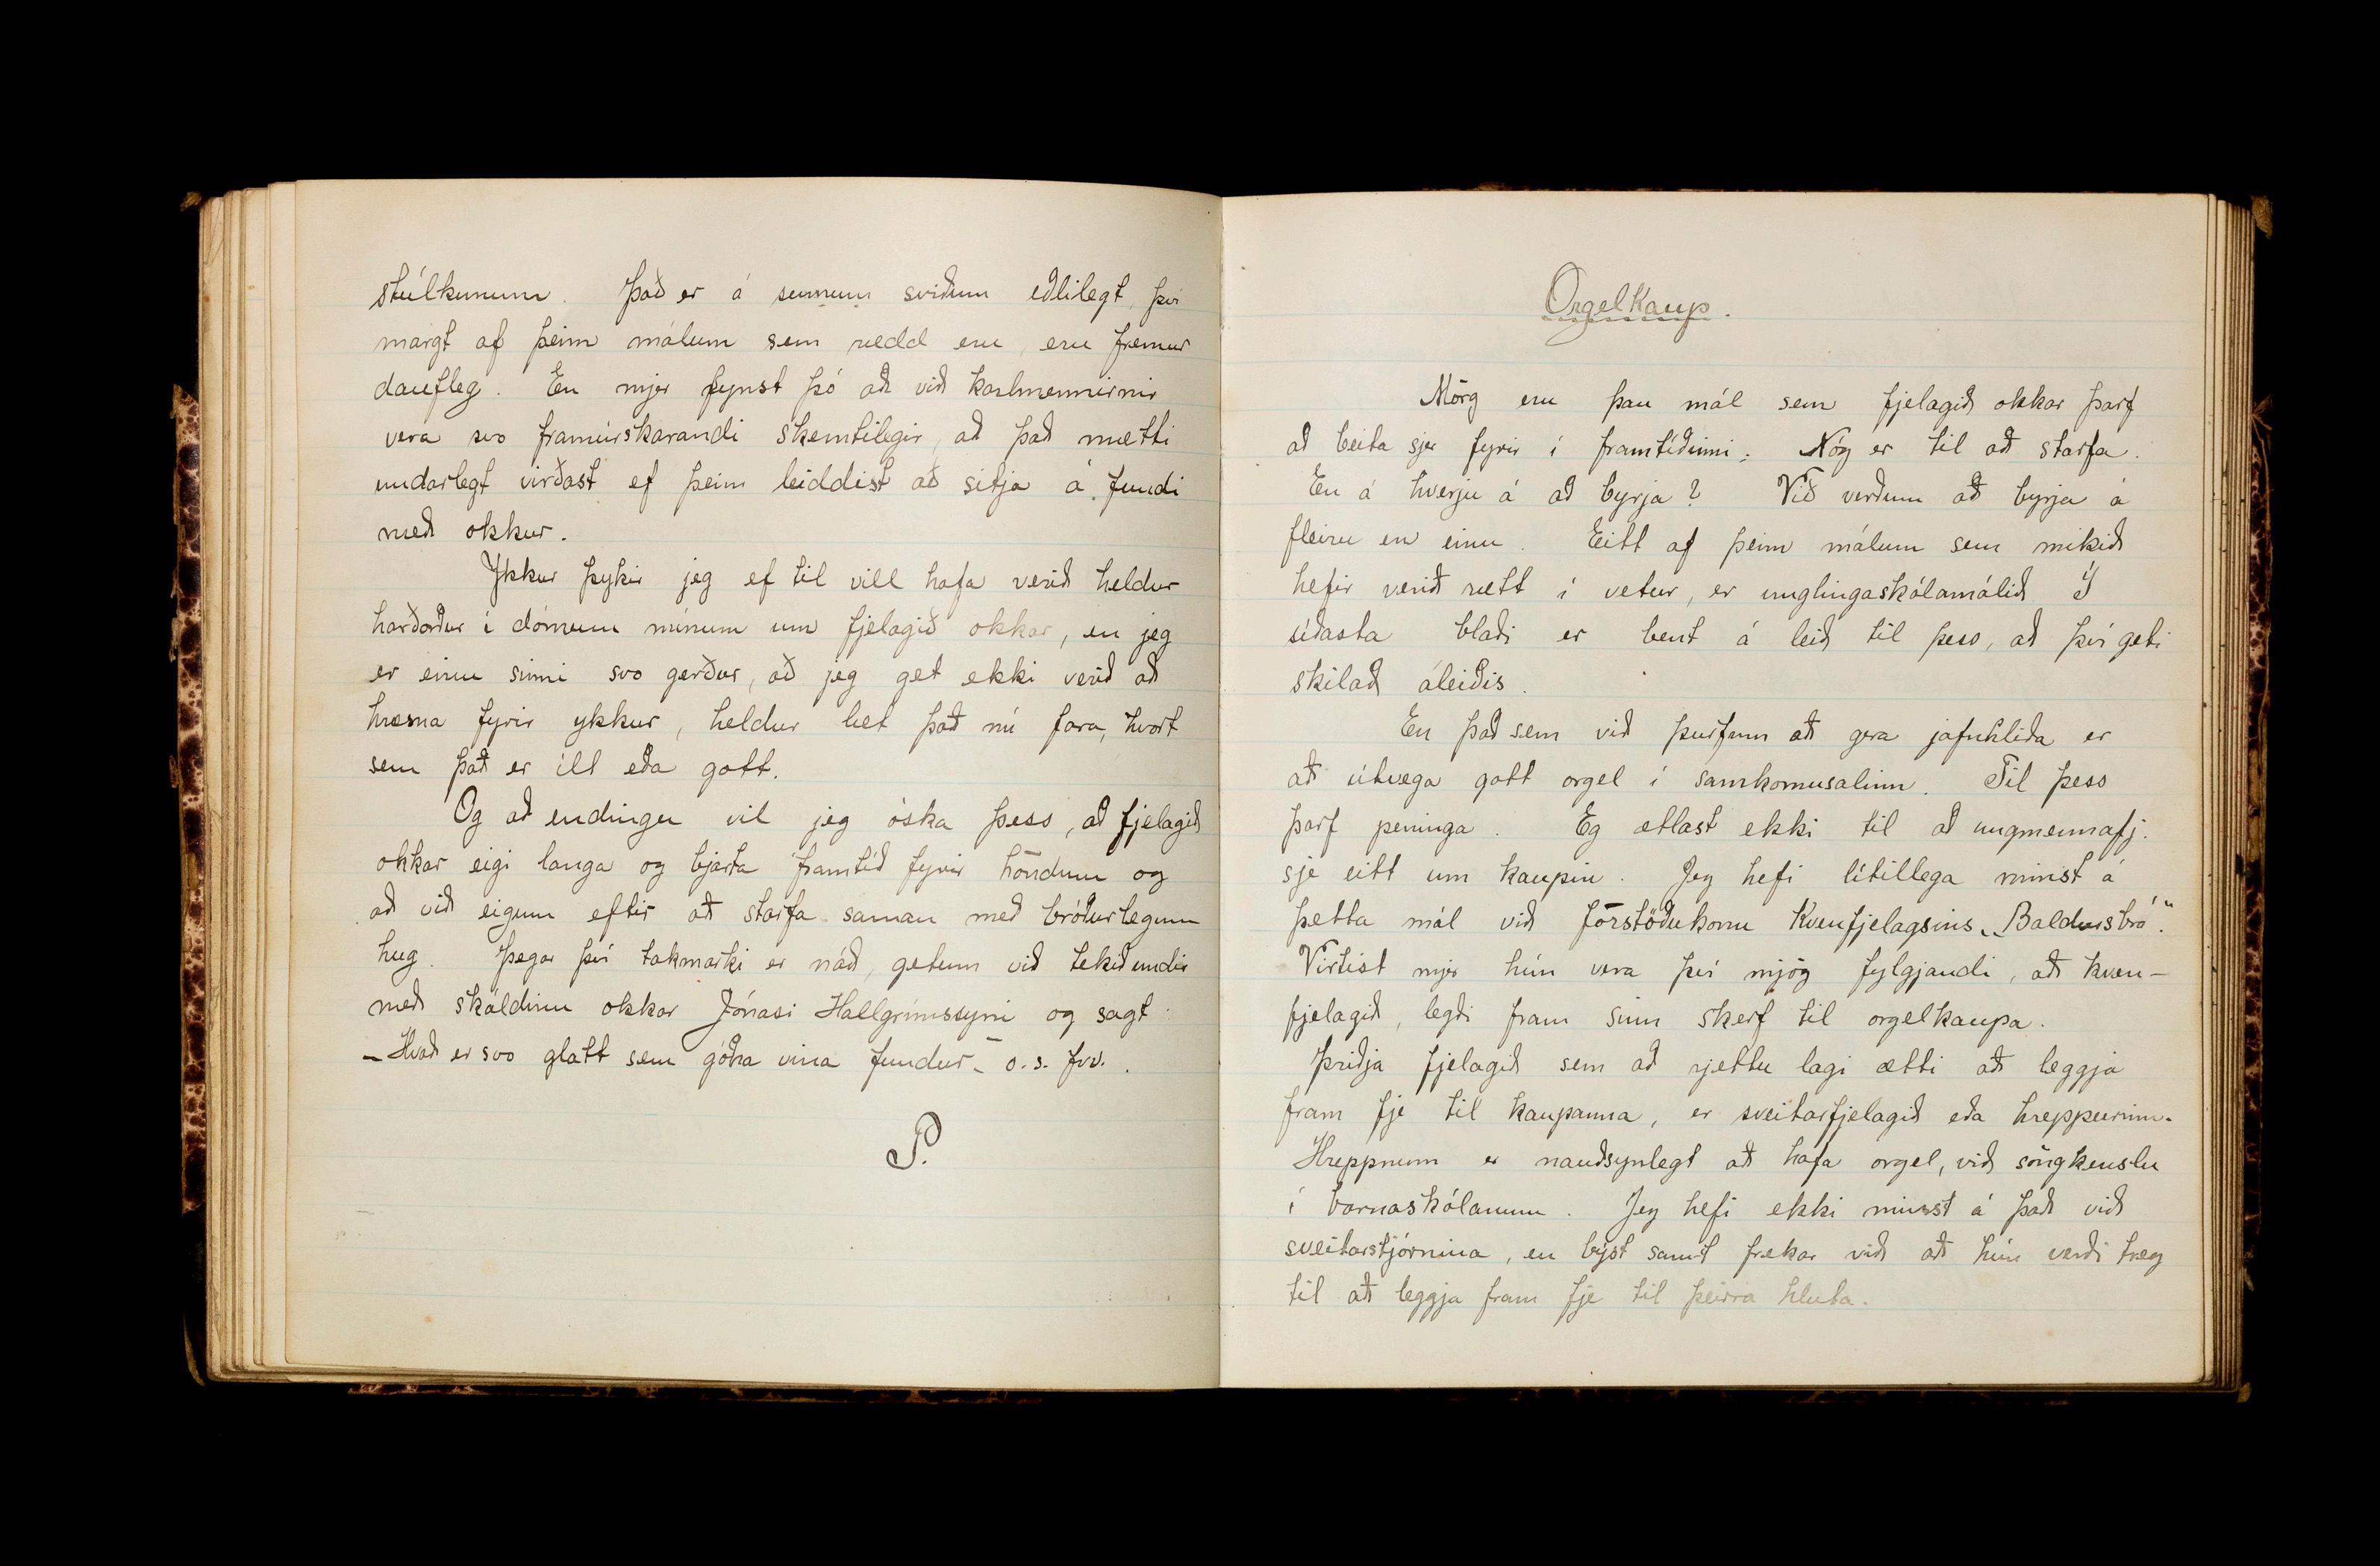 stúlkunum. Það er á sumum sviðum eðlilegt, því
margt af þeim málum sem rædd eru, eru fremur
daufleg. En mjer fynst þó að við karlmennirnir
vera svo framúrskarandi skemtilegir, að það mætti
undarlegt virðast ef þeim leiddist að sitja á fundi
með okkur.
Ykkur þykir jeg ef til vill hafa verið heldur
harðorður í dómum mínum um fjelagið okkar, en jeg
er einu sinni svo gerður, að jeg get ekki verið að
hræsna fyrir ykkur, heldur læt það nú fara, hvort
sem það er illt eða gott.
Og að endingu vil jeg óska þess, að fjelagið
okkar eigi langa og bjarta framtíð fyrir höndum og
að við eigum eftir að starfa saman með bróðurlegum
hug. Þegar því takmarki er náð, getum við tekið undir
með skáldinu okkar Jónasi Hallgrímssyni og sagt:
- Hvað er svo glatt sem góðra vina fundur - o.s.frv.
P.
Orgelkaup.
Mörg eru þau mál sem fjelagið okkar þarf
að beita sjer fyrir í framtíðinni. Nóg er til að starfa.
En á hverju á að byrja? Við verðum að byrja á
fleiru en einu. Eitt af þeim málum sem mikið
hefir verið rætt í vetur, er unglingaskólamálið. Í
síðasta blaði er bent á leið til þess, að því geti
skilað áleiðis.
En það sem við þurfum að gera jafnhliða er
að útvega gott orgel í samkomusalinn. Til þess
þarf peninga. Eg ætlast ekki til að ungmennafj.
sje eitt um kaupin. Jeg hefi lítillega minst á
þetta mál við forstöðukonu Kvenfjelagsins „Baldursbrá".
Virtist mjer hún vera því mjög fylgjandi, að kven-
fjelagið, legði fram sinn skerf til orgelkaupa.
Þriðja fjelagið sem að rjettu lagi ætti að leggja
fram fje til kaupanna, er sveitarfjelagið eða hreppurinn.
Hreppnum er nauðsynlegt að hafa orgel, við söngkenslu
í barnaskólanum. Jeg hefi ekki minst á það við
sveitarstjórnina, en býst samt frekar við að hún verði treg
til að leggja fram fje til þeirra hluta.